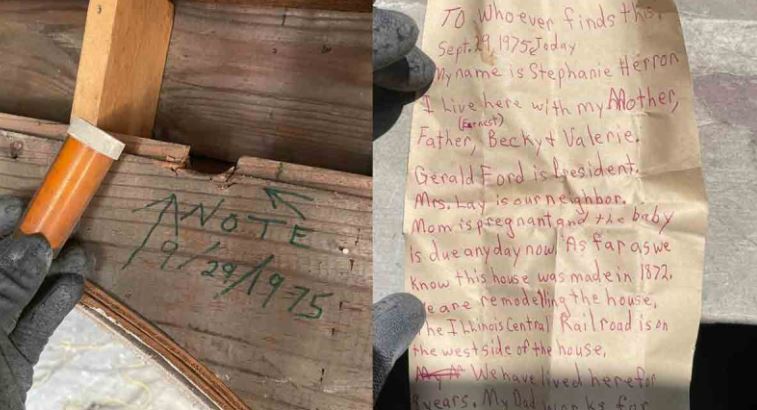 A NOTE
9/29/1975
TO Whoever finds this,
Sept. 29, 1975, Today
My name is Stephanie Herron
I Live here with my Mother,
(Earnest)
Father, Becky & Valerie.
Gerald Ford is President.
Mrs. Lay is our neighbor.
Mom is pregnant and the baby
is due any day now. As far as we
know this house was made in 1872.
We are remodelling the house.
The Illinois Central Railroad is on
the west side of the house.
We have lived here for
years. My Dad works for